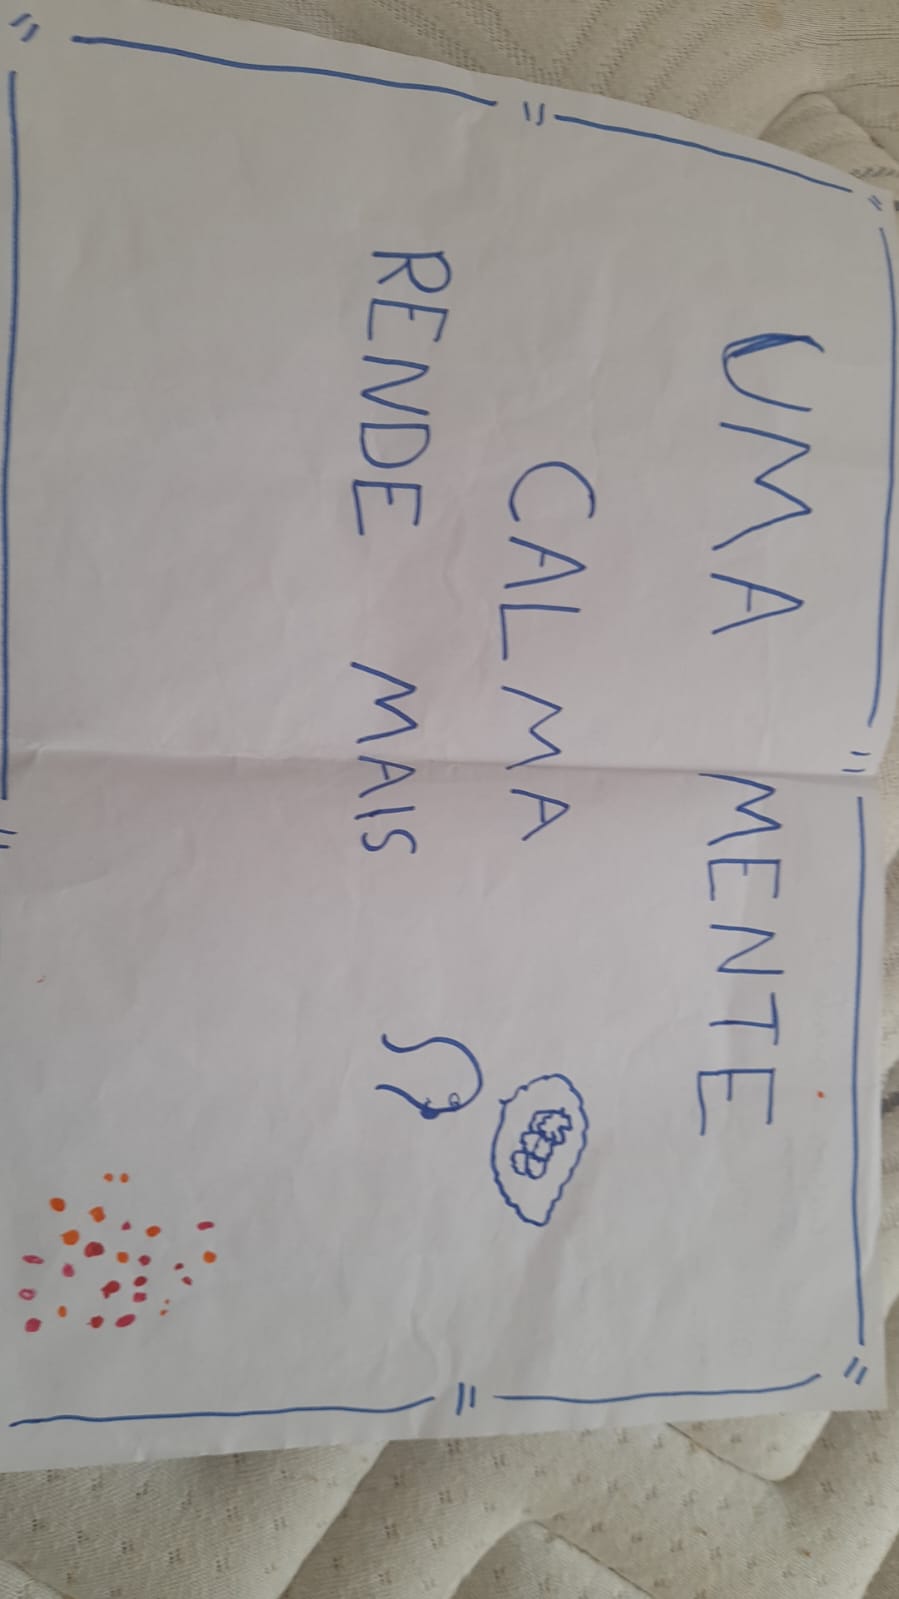 UMA MENTE
CALMA
RENDE MAIS